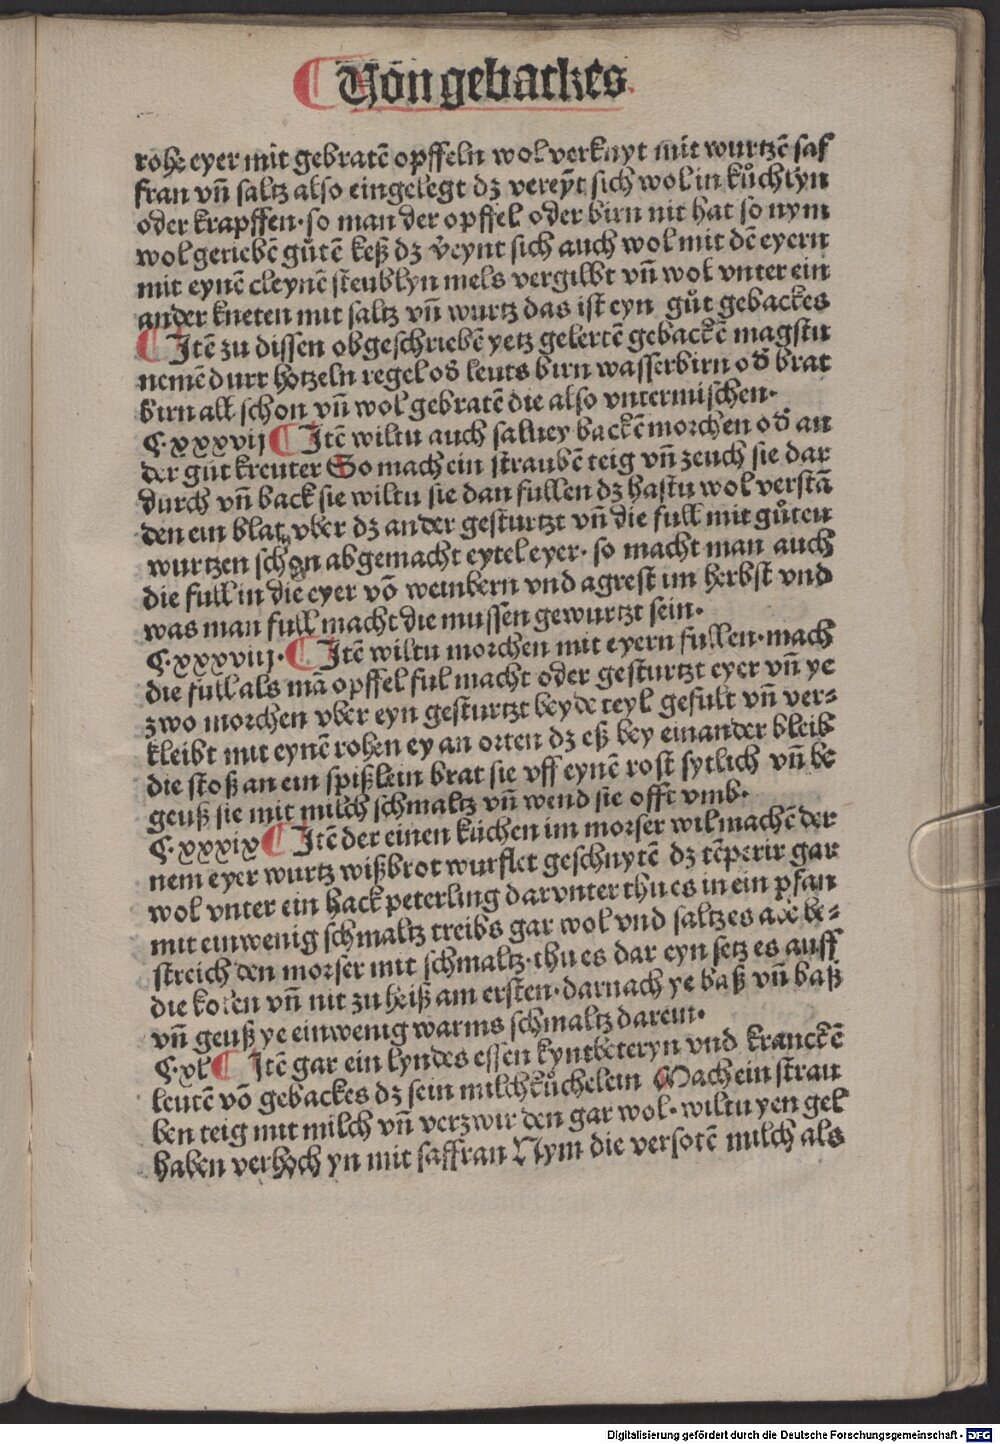 Von gebackes
rohe eyer mit gebratē opffeln wol verknyt mit wurtzē saf
fran vñ saltz also eingelegt dz vereȳt sich wol in kůchlyn
oder krapffen· so man der opffel oder birn nit hat so nym
wol geriebē gůtē keß dz v̄eynt sich auch wol mit dē eyern
mit eynē cleynē steublyn mels vergilbt vñ wol vnter ein
ander kneten mit saltz vñ wurtz das ist eyn gůt gebackes
Itē zu dissen obgeschriebē yetz gelertē gebackē magstu
nemē durr hotzeln regel od̄ leuts birn wasserbirn od̄ brat
birn all schon vñ wol gebratē die also vntermischen·
C·xxxvij Itē wiltu auch saluey backē morchen od̄ an
der gut kreuter So mach ein straubē teig vñ zeuch sie dar
durch vñ back sie wiltu sie dan fullen dz hastu wol verstā
den ein blat vber dz ander gesturtzt vñ die full mit gůten
wurtzen schon abgemacht eytel eyer· so macht man auch
die full in die eyer vō weinbern vnd agrest im herbst vnd
was man full macht die mussen gewurtzt sein·
C·xxxviij· Itē wiltu morchen mit eyern fullen· mach
die full als mā opffel ful macht oder gesturtzt eyer vñ ye
zwo morchen vber eyn gesturtzt beyde teyl gefult vñ ver⸗
kleibt mit eynē rohen ey an orten dz eß bey einander bleib
die stoß an ein spißlein brat sie vff eynē rost sytlich vñ be
geuß sie mit milch schmaltz vñ wend sie offt vmb·
C·xxxix Itē der einen kůchen im morser wil machē der
nem eyer wurtz wißbrot wurflet geschnytē dz tēperir gar
wol vnter ein hack peterling darvnter thu es in ein pfan
mit einwenig schmaltz treibs gar wol vnd saltz es be⸗
streich den morser mit schmaltz· thu es dar eyn setz es auff
die kolen vñ nit zu heiß am ersten· darnach ye baß vñ baß
vñ geuß ye einwenig warms schmaltz darein·
C·xl Itē gar ein lyndes essen kyntbeteryn vnd kranckē
leutē vō gebackes dz sein milchkůchelein Mach ein strau
ben teig mit milch vñ verzwir den gar wol· wiltu yen gel
haben verhoch yn mit saffran Nym die versotē milch als
Digitalisierung gefördert durch die Deutsche Forschungsgemeinschaft - DFG